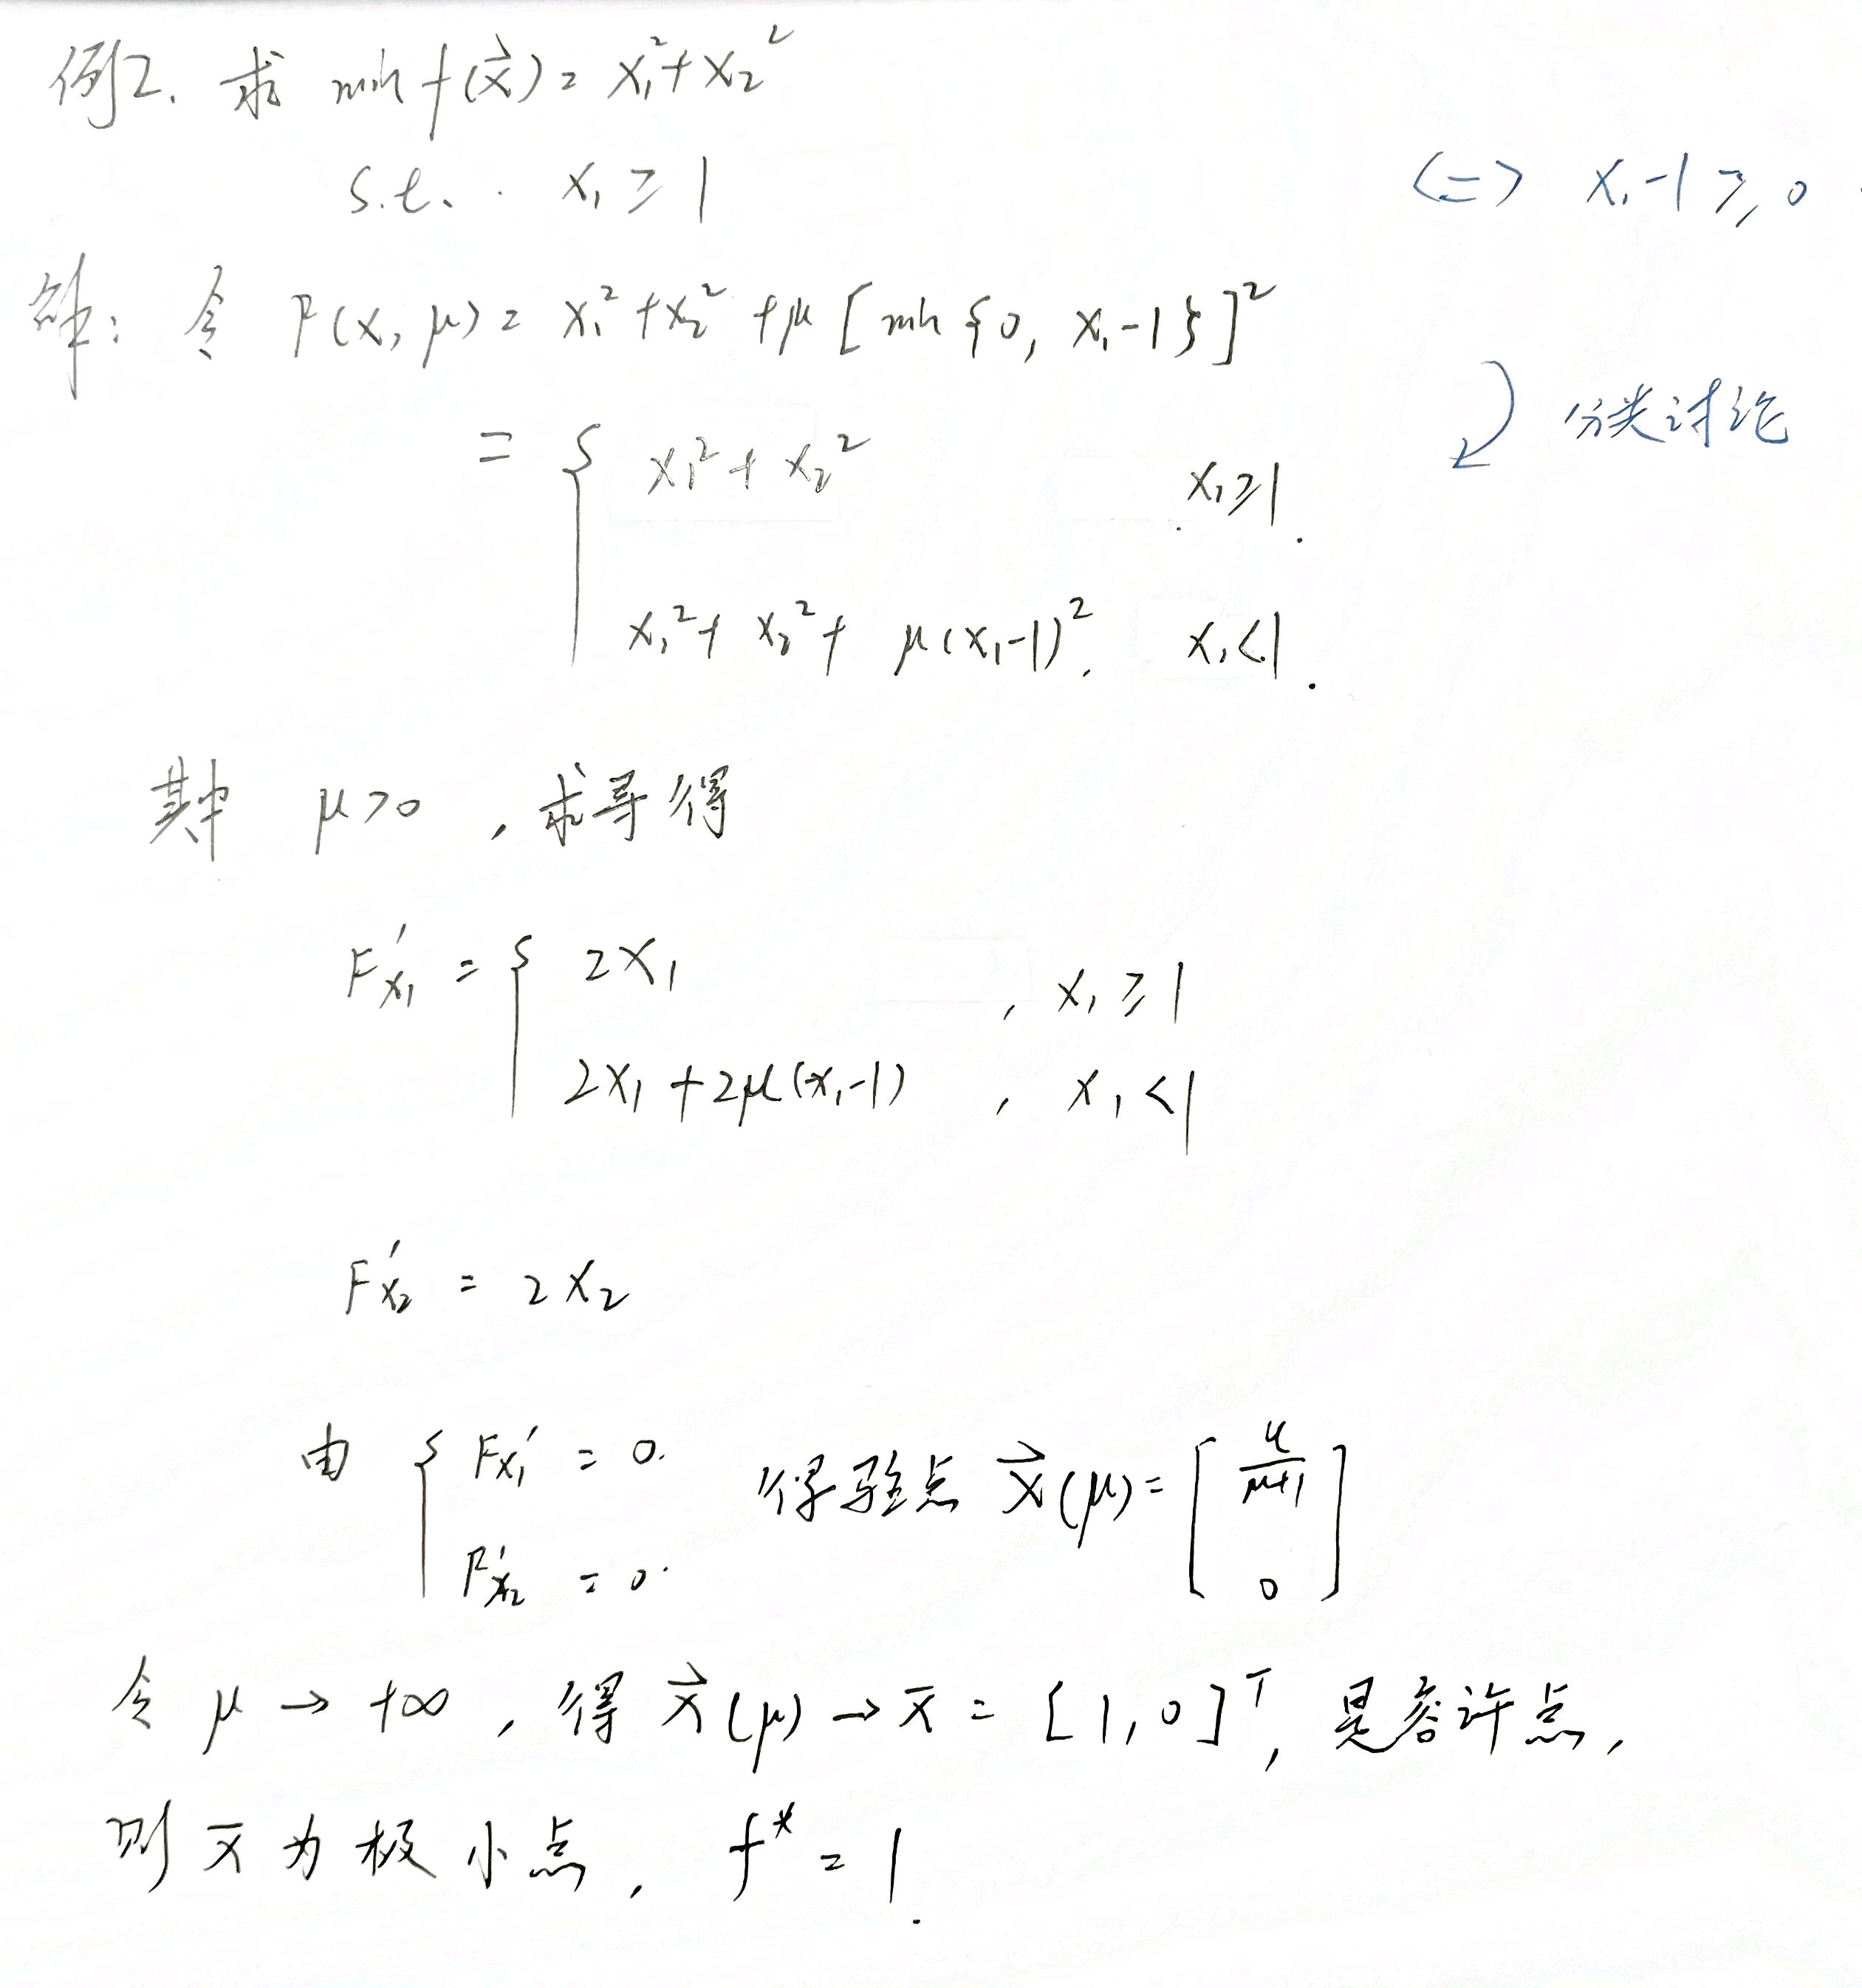 例2. 求 min f(x⃗) = x₁² + x₂²
s.t. x₁ ≥ 1 <=> x₁-1 ≥ 0
解: 令 F(x, μ) = x₁² + x₂² + μ [min {0, x₁-1}]²
= { x₁² + x₂² x₁≥1. 分类讨论
x₁² + x₂² + μ(x₁-1)², x₁<1.
其中 μ>0 , 求导得
F'x₁ = { 2x₁ , x₁ ≥ 1
2x₁ + 2μ(x₁-1) , x₁ < 1
F'x₂ = 2x₂
由 { F'x₁ = 0. 得驻点 x⃗(μ) = [ μ/(μ+1)
F'x₂ = 0. 0 ]
令 μ → +∞ , 得 x⃗(μ) → x̄ = [1, 0]ᵀ, 是容许点,
则 x̄ 为极小点, f* = 1.